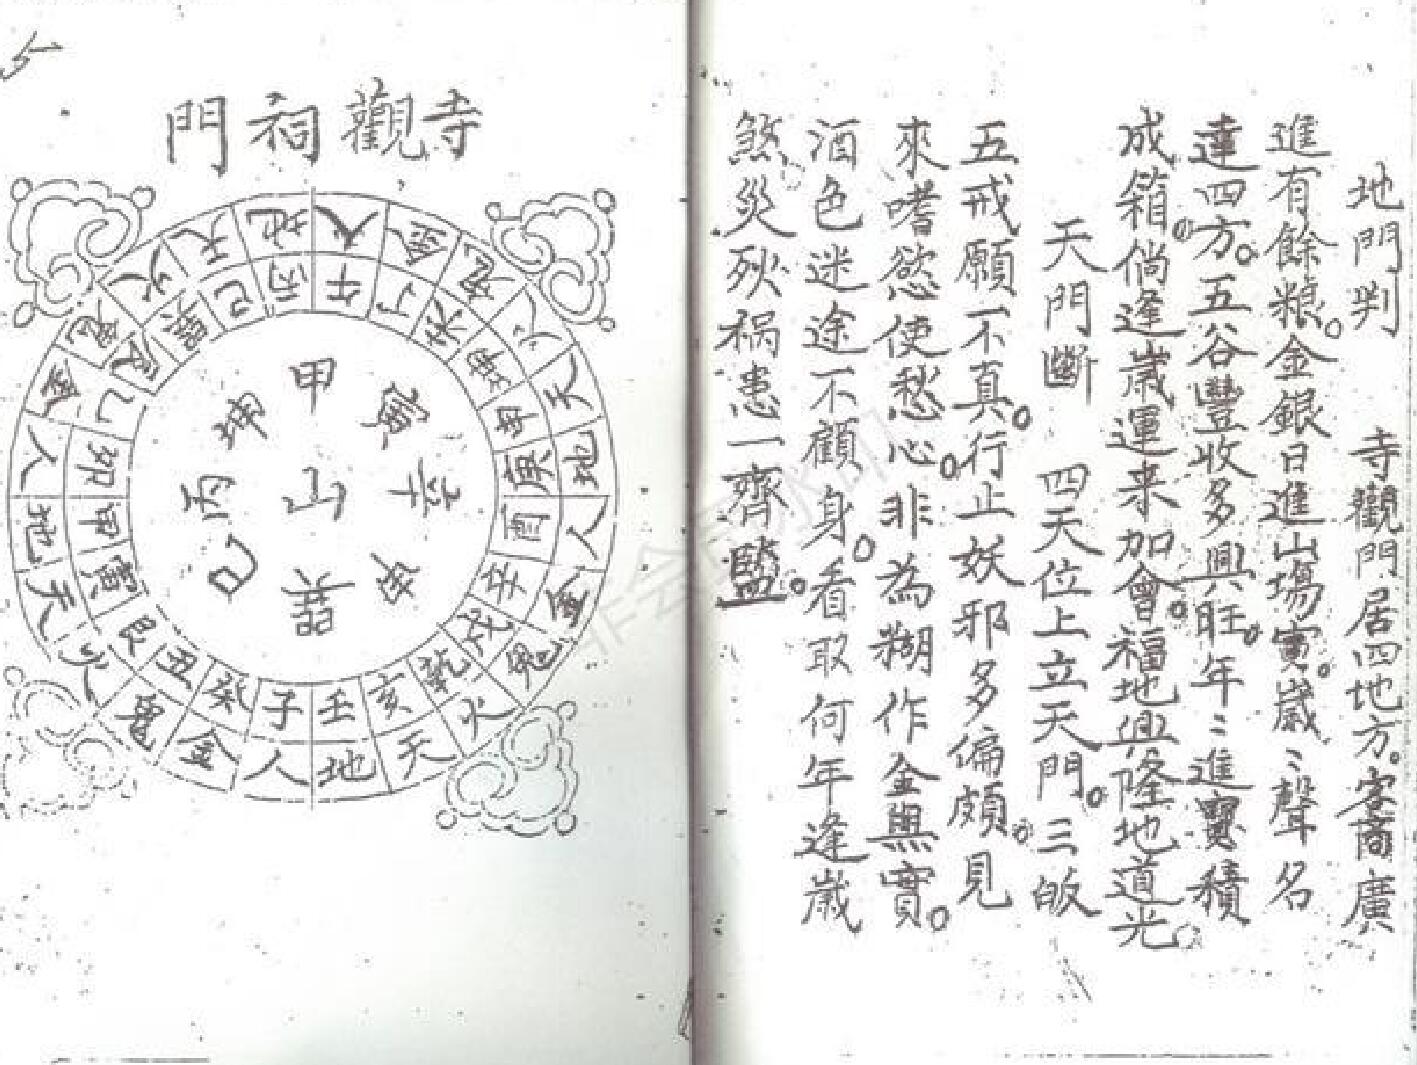 地門判　寺觀門居四地方。客商廣
進有餘粮。金銀日進山場實。歲〻聲名
達四方。五谷豐收多興旺。年〻進寶積
成箱。倘逢歲運来加會。福地興隆地道光。
天門斷　四天位上立天門。三皈
五戒願不真。行止妖邪多偏頗。見
來嗜慾使愁心。非為糊作金無實。
酒色迷途不顧身。看取何年逢歲
煞。災殃祸患一齊臨。
5
寺觀祠門
地 天 金 鬼 火 天 地 人 金 鬼 火 天 地 人 金 鬼 火 天 地 人 金 鬼 火 天
丙 午 丁 未 坤 申 庚 酉 辛 戌 乾 亥 壬 子 癸 丑 艮 寅 甲 卯 乙 辰 巽 巳
甲
辛
申
巽
巳
丙
坤
山